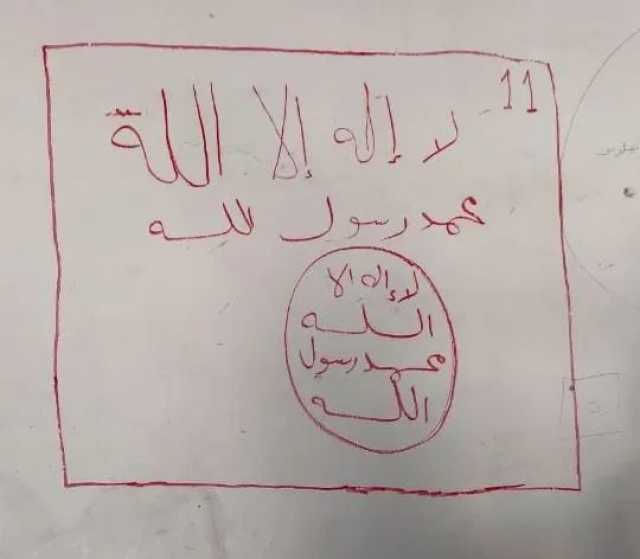 11- لا إله إلا اللة
محمد رسول لله
لا إله الا
الله
محمد رسول
الله